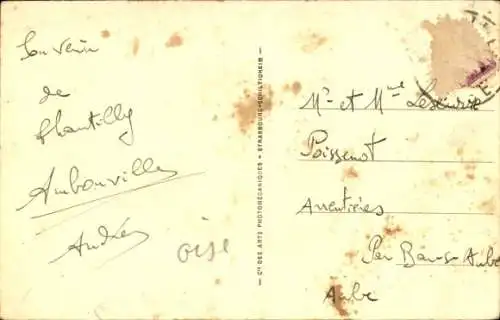 Souvenir
de
Chantilly
Ambouville
Andrée
oise
Cie DES ARTS PHOTOMÉCANIQUES - STRASBOURG-SCHILTIGHEIM -
Mr et Mme
Poissenot
Arrentières
Par Bar-s-Aube
Aube